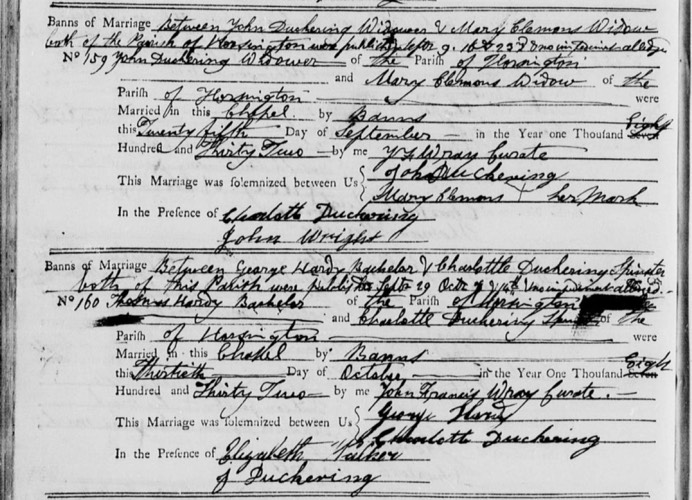 Banns of Marriage Between John Duckering Widower & Mary Clemons Widow
both of the Parish of Horsington were published Septr 9. 16 & 23d & no impedimt alledged
No 159 John Duckering Widower — of the Parish of Horsington
and Mary Clemons Widow of the
Parish of Horsington were
Married in this Chapel by Banns
this Twenty fifth Day of September — in the Year one Thousand Seven Eight
Hundred and Thirty Two — by me Wray Curate
This Marriage was solemnized between Us { John Duckering
Mary Clemons + her Mark
In the Presence of Charlotte Duckering
John Wright
Banns of Marriage Between George Hardy Bachelor & Charlottle Duckering Spinster
both of this Parish were Published Septr 29 Octr 7 & 14 & no impedimt alledged. —
No 160 Thomas Hardy Bachelor of the Parish of Horsington
and Charlotte Duckering of the
Parish of Horsington — were
Married in this Chapel by Banns
this Thirtieth — Day of October — in the Year One Thousand Seven Eight
Hundred and Thirty Two — by me John Francis Wray Curate. —
This Marriage was solemnized between Us { George Hardy
Charlotte Duckering
In the Presence of Elizabeth
J Duckering